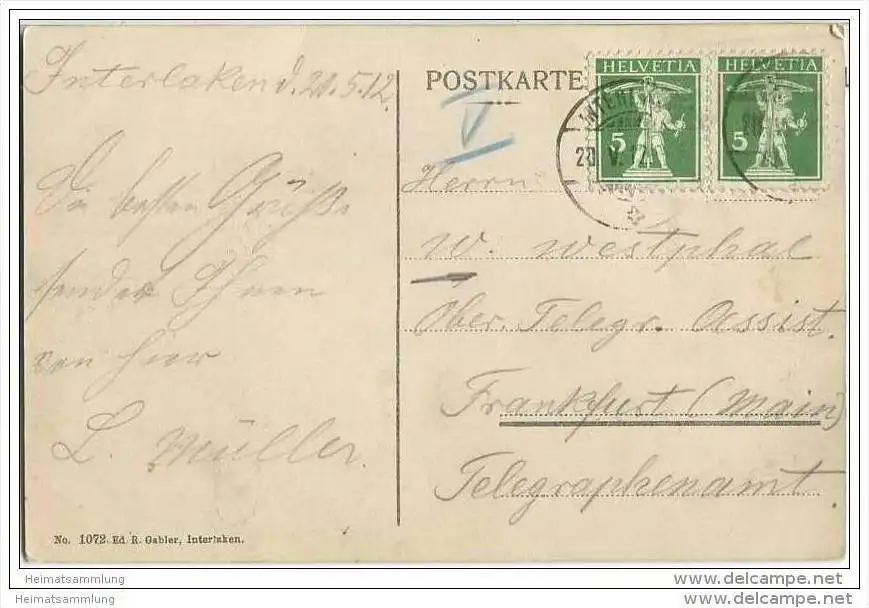 Interlaken d. 20.5.12.
Die besten Grüße
sendet Ihnen
von hier
L. Müller.
No. 1072. Ed. R. Gabler, Interlaken.
POSTKARTE
V
HELVETIA
5
HELVETIA
5
20. V. 12
Herrn
W. Westphal
Ober. Telegr. Assist.
Frankfurt (Main)
Telegraphenamt.
Heimatsammlung
Heimatsammlung
www.delcampe.net
www.delcampe.net